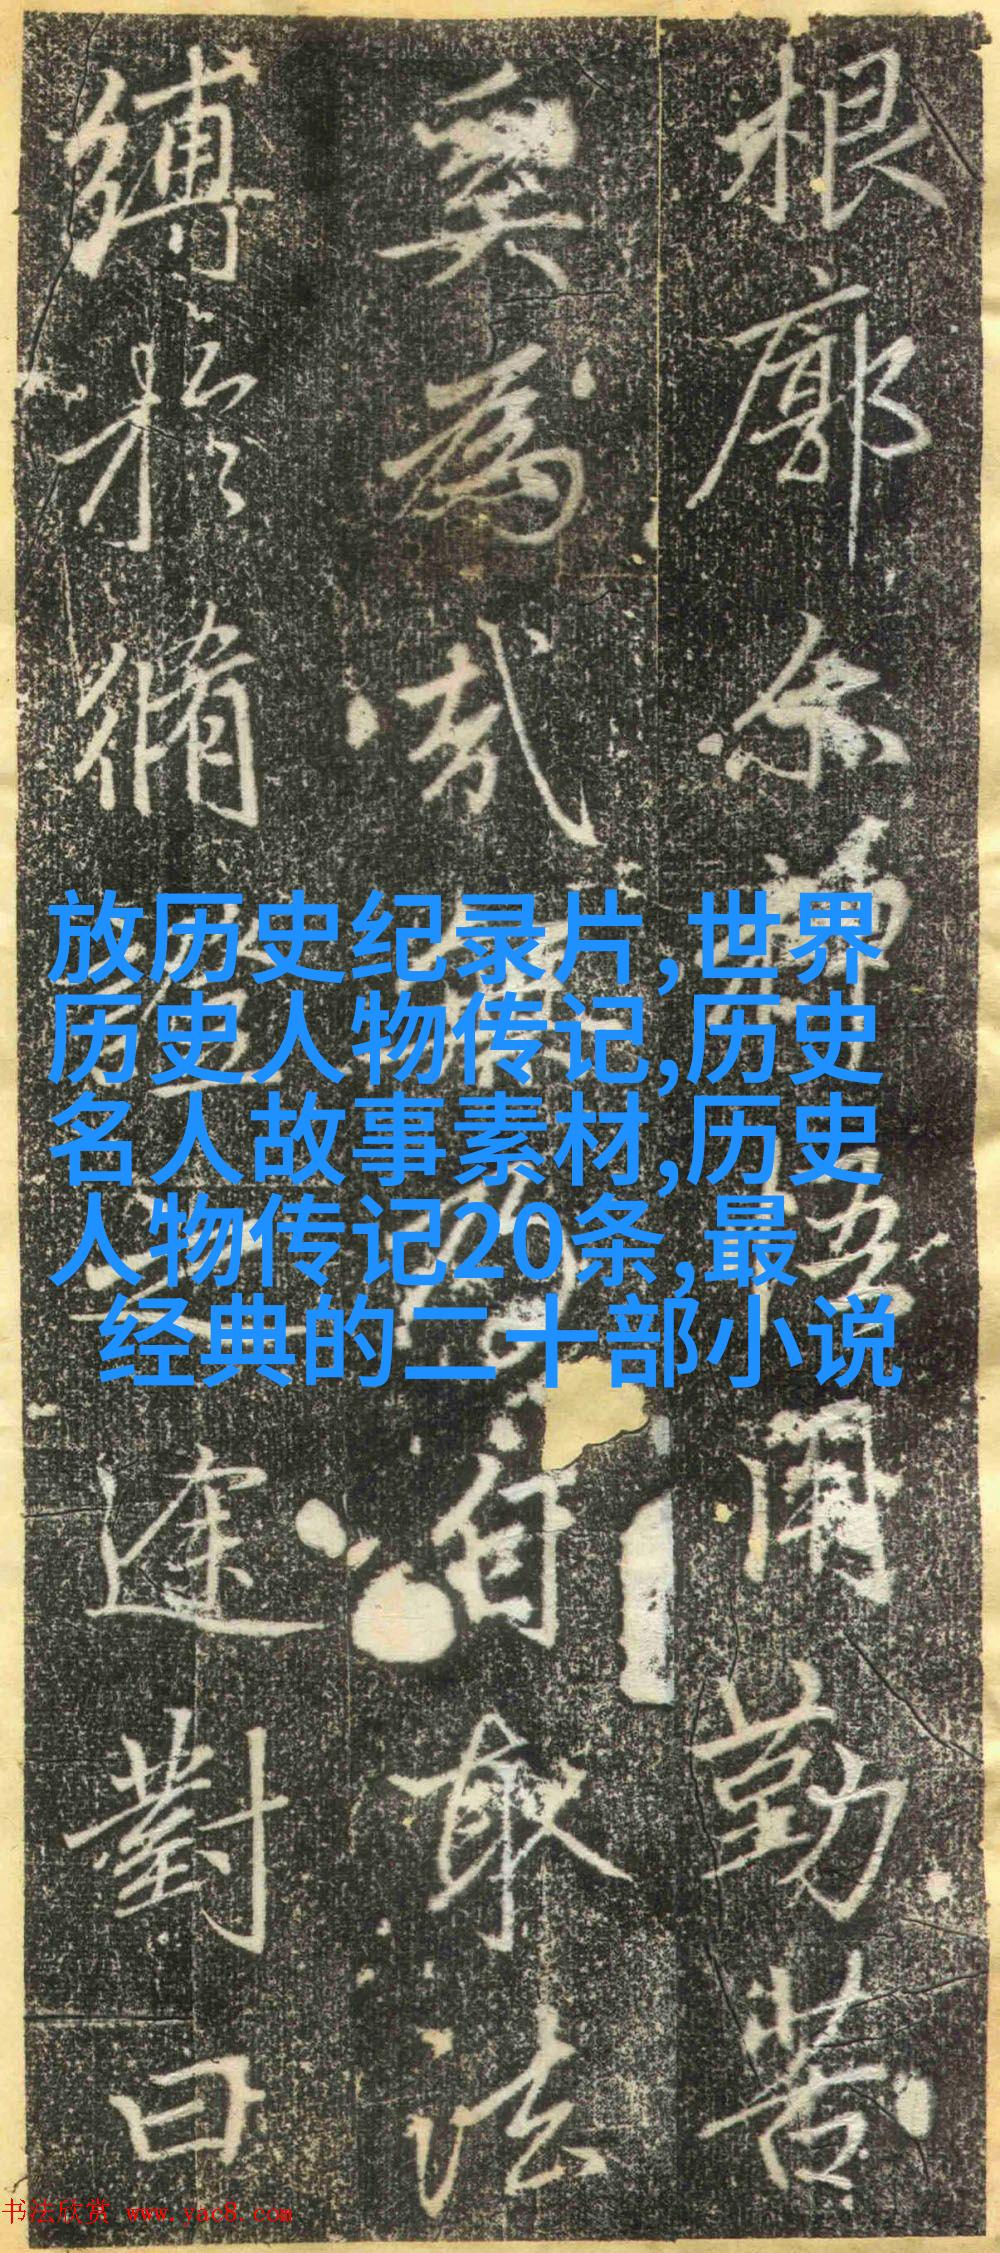 根廓尔□□□聞勤苦
矣為戒□□自取法
縛於脩□之途對曰
放历史纪录片,世界
历史人物传记,历史
名人故事素材,历史
人物传记20条,最
经典的二十部小说
书法欣赏 www.yac8.com